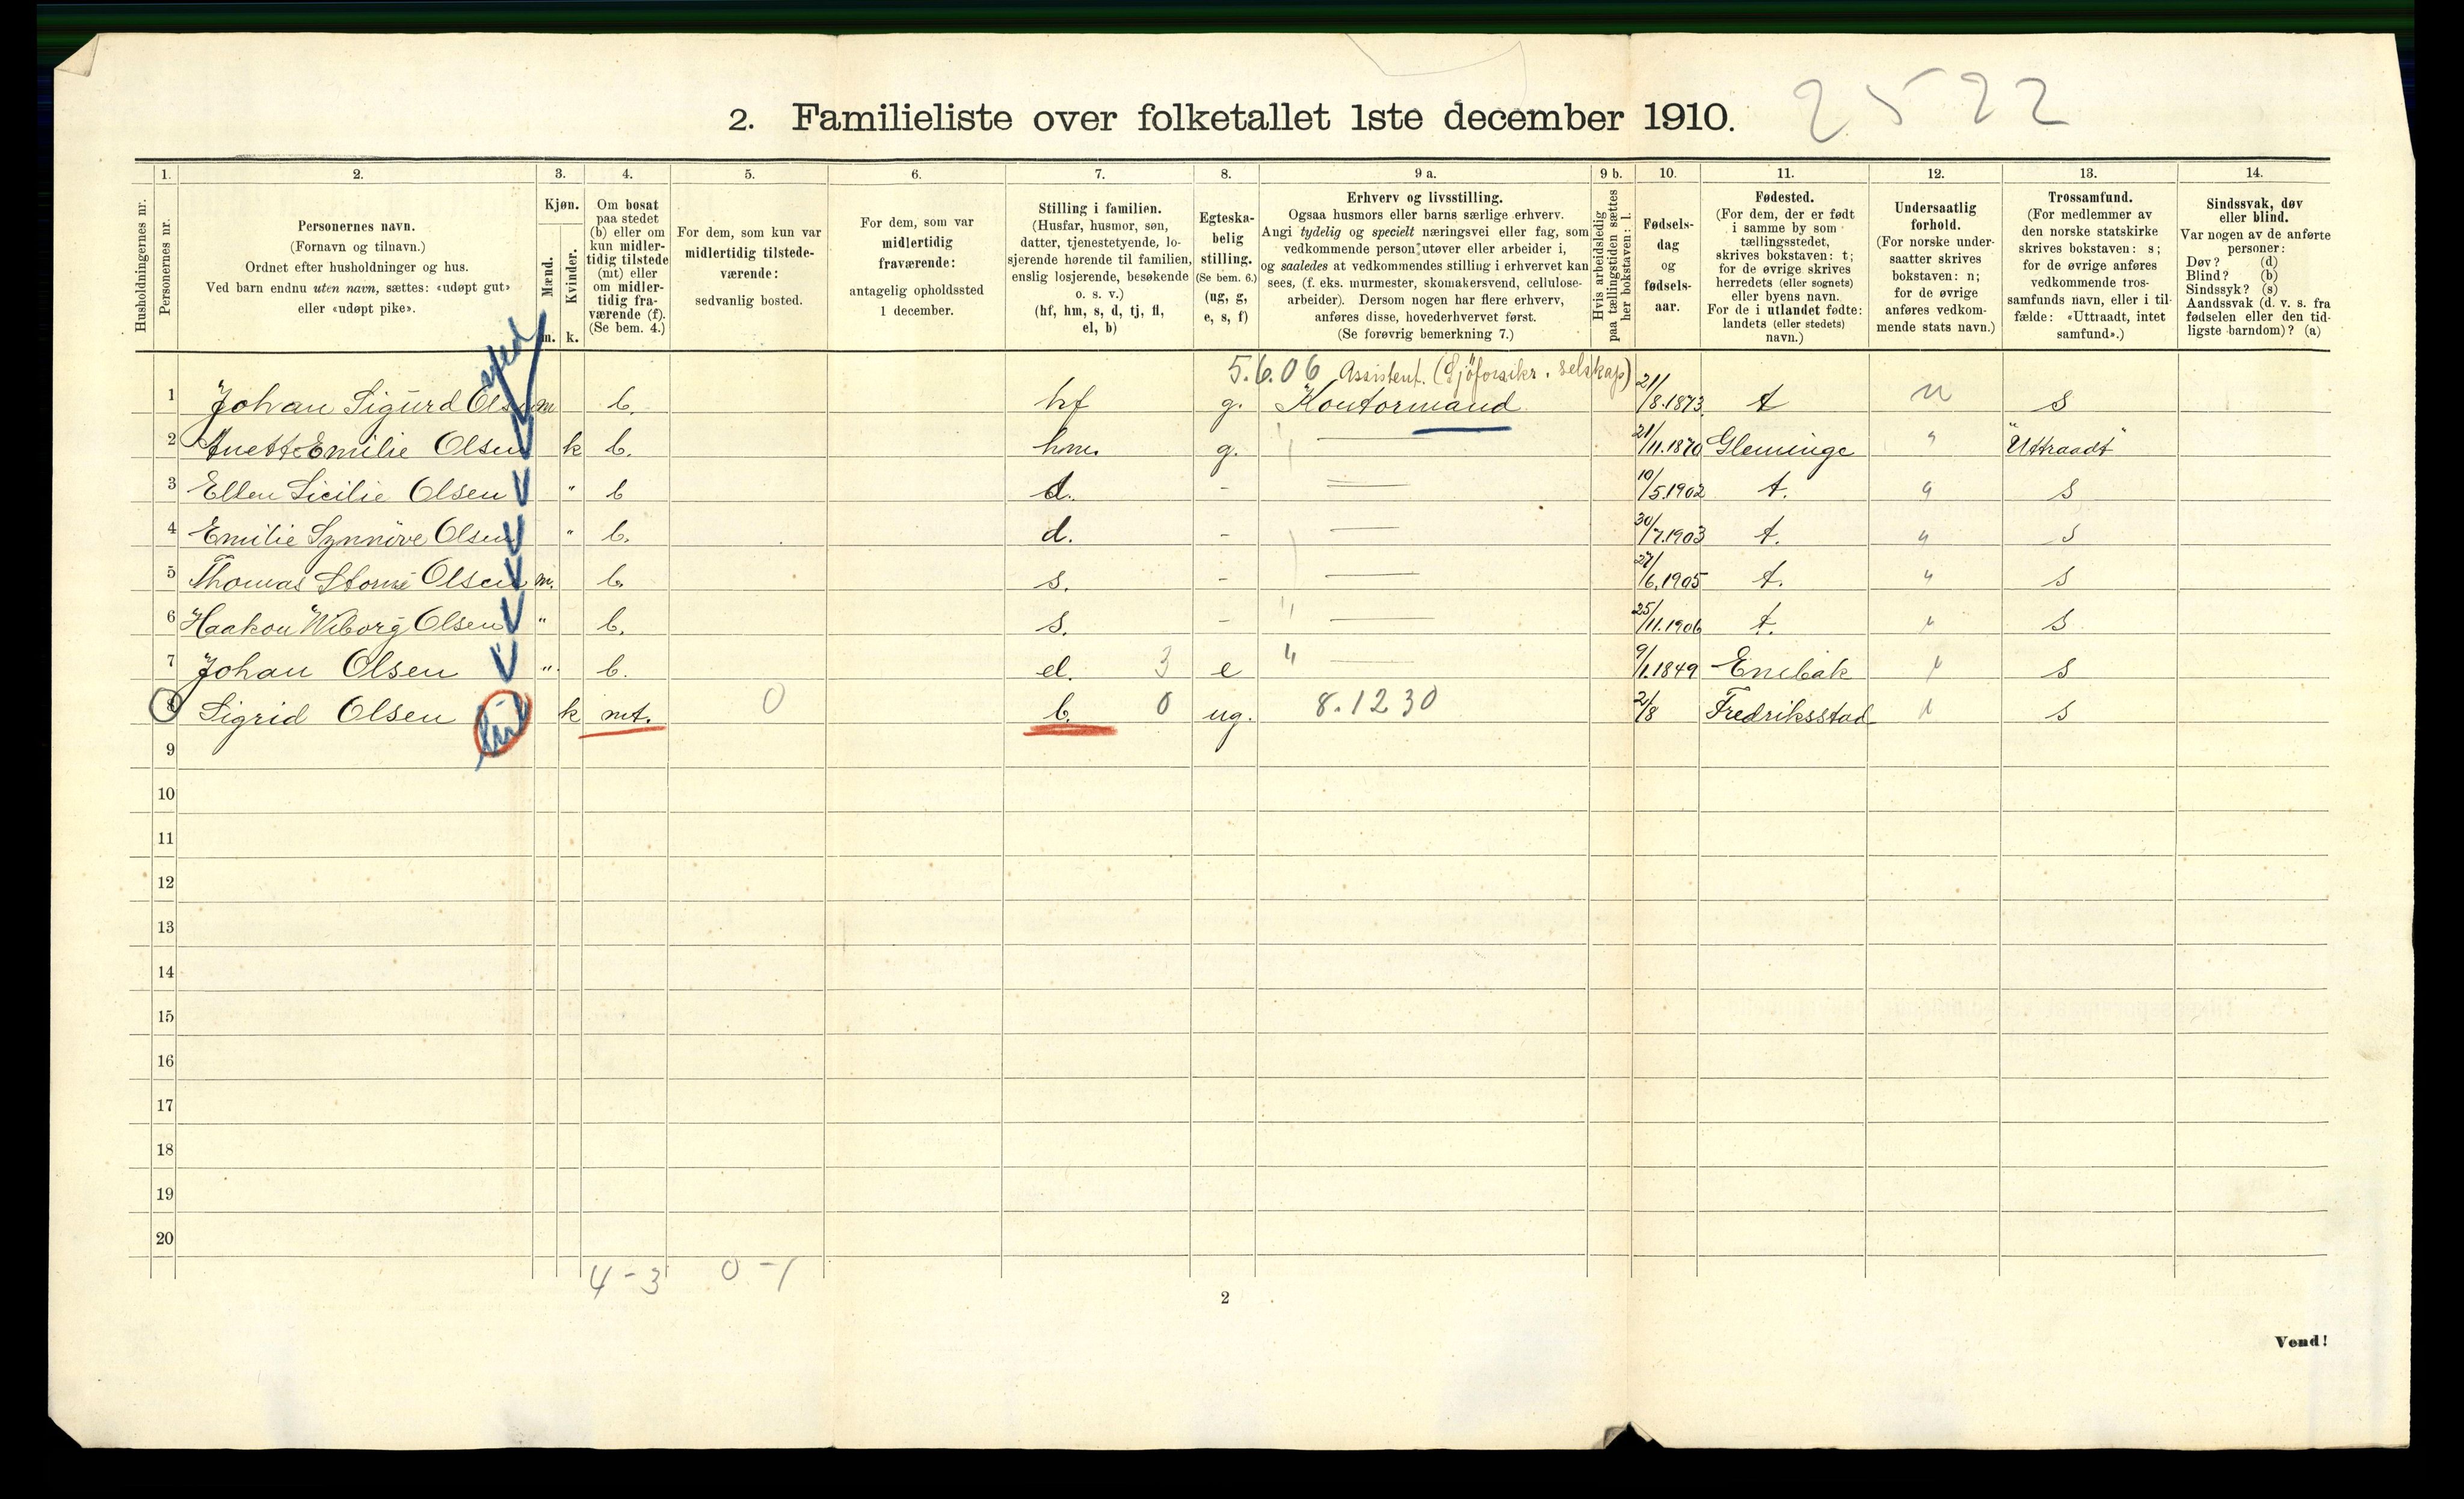 2. Familieliste over folketallet 1ste december 1910. 2522
1. 2. 3. 4. 5. 6. 7. 8. 9 a. 9 b. 10. 11. 12. 13. 14.
Husholdningernes nr.
Personernes nr.
Personernes navn.
(Fornavn og tilnavn.)
Ordnet efter husholdninger og hus.
Ved barn endnu uten navn, sættes: «udøpt gut»
eller «udøpt pike».
Kjøn.
Mænd.
Kvinder.
m. k.
Om bosat
paa stedet
(b) eller om
kun midler-
tidig tilstede
(mt) eller
om midler-
tidig fra-
værende (f).
(Se bem. 4.)
For dem, som kun var
midlertidig tilstede-
værende:
sedvanlig bosted.
For dem, som var
midlertidig
fraværende:
antagelig opholdssted
1 december.
Stilling i familien.
(Husfar, husmor, søn,
datter, tjenestetyende, lo-
sjerende hørende til familien,
enslig losjerende, besøkende
o. s. v.)
(hf, hm, s, d, tj, fl,
el, b)
Egteska-
belig
stilling.
(Se bem. 6.)
(ug, g,
e, s, f)
Erhverv og livsstilling.
Ogsaa husmors eller barns særlige erhverv.
Angi tydelig og specielt næringsvei eller fag, som
vedkommende person utøver eller arbeider i,
og saaledes at vedkommendes stilling i erhvervet kan
sees, (f. eks. murmester, skomakersvend, cellulose-
arbeider). Dersom nogen har flere erhverv,
anføres disse, hovederhvervet først.
(Se forøvrig bemerkning 7.)
Hvis arbeidsledig
paa tællingstiden sættes
her bokstaven: l.
Fødsels-
dag
og
fødsels-
aar.
Fødested.
(For dem, der er født
i samme by som
tællingsstedet,
skrives bokstaven: t;
for de øvrige skrives
herredets (eller sognets)
eller byens navn.
For de i utlandet fødte:
landets (eller stedets)
navn.)
Undersaatlig
forhold.
(For norske under-
saatter skrives
bokstaven: n;
for de øvrige
anføres vedkom-
mende stats navn.)
Trossamfund.
(For medlemmer av
den norske statskirke
skrives bokstaven: s;
for de øvrige anføres
vedkommende tros-
samfunds navn, eller i til-
fælde: «Uttraadt, intet
samfund».)
Sindssvak, døv
eller blind.
Var nogen av de anførte
personer:
Døv? (d)
Blind? (b)
Sindssyk? (s)
Aandssvak (d. v. s. fra
fødselen eller den tid-
ligste barndom)? (a)
5.6.06 Assistent. (Sjöforsikr. selskap)
1 Johan Sigurd Olsen m b. hf g. Kontormand 21/8.1873 t n s
2 Anette Emilie Olsen k b. hm. g. " — 21/11.1870 Gleminge " "Uttraadt"
3 Ellen Sicilie Olsen " b d. - — 10/5.1902 t. " s
4 Emilie Synnöve Olsen " b. d. - — 30/7.1903 t. " s
5 Thomas Storm Olsen m. b. s. - — 27/6.1905 t. " s
6 Haakon Wiborg Olsen " b. s. - " — 25/11.1906 t. " s
7 Johan Olsen " b. el. 3 e " — 9/1.1849 Enebak " s
8 Sigrid Olsen k mt. 0 b. 0 ug. 8.12 30 2/8 Fredriksstad " s
9
10
11
12
13
14
15
16
17
18
19
20
4-3 0-1
2
Vend!